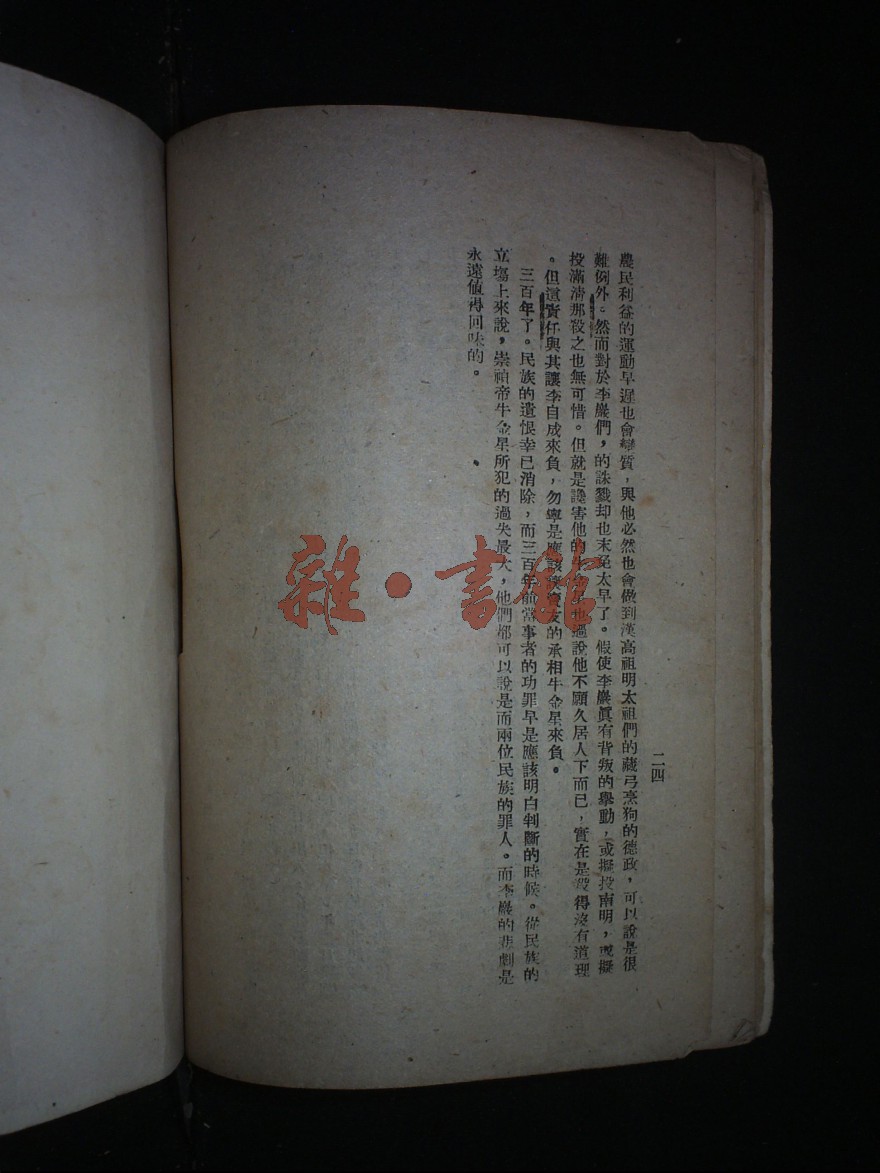 農民利益的運動早遲也會變質，與他必然也會做到漢高祖明太祖們的藏弓烹狗的德政，可以說是很
難例外。然而對於李巖們，的誅戮却也未免太早了。假使李巖眞有背叛的舉動，或擬投南明，或擬
投滿清那殺之也無可惜。但就是讒害他的牛金星也過說他不願久居人下而已，實在是殺得沒有道理
。但這責任與其讓李自成來負，勿寧是應該讓賣友的承相牛金星來負。
三百年了。民族的遺恨幸已消除，而三百年前當事者的功罪早是應該明白判斷的時候。從民族的
立塲上來說，崇禎帝牛金星所犯的過失最大，他們都可以說是而兩位民族的罪人。而李巖的悲劇是
永遠値得回味的。
二四
雜·書館